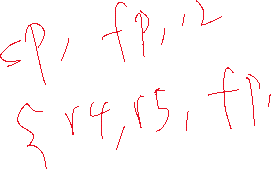 sp, fp, 12
{r4, r5, fp,